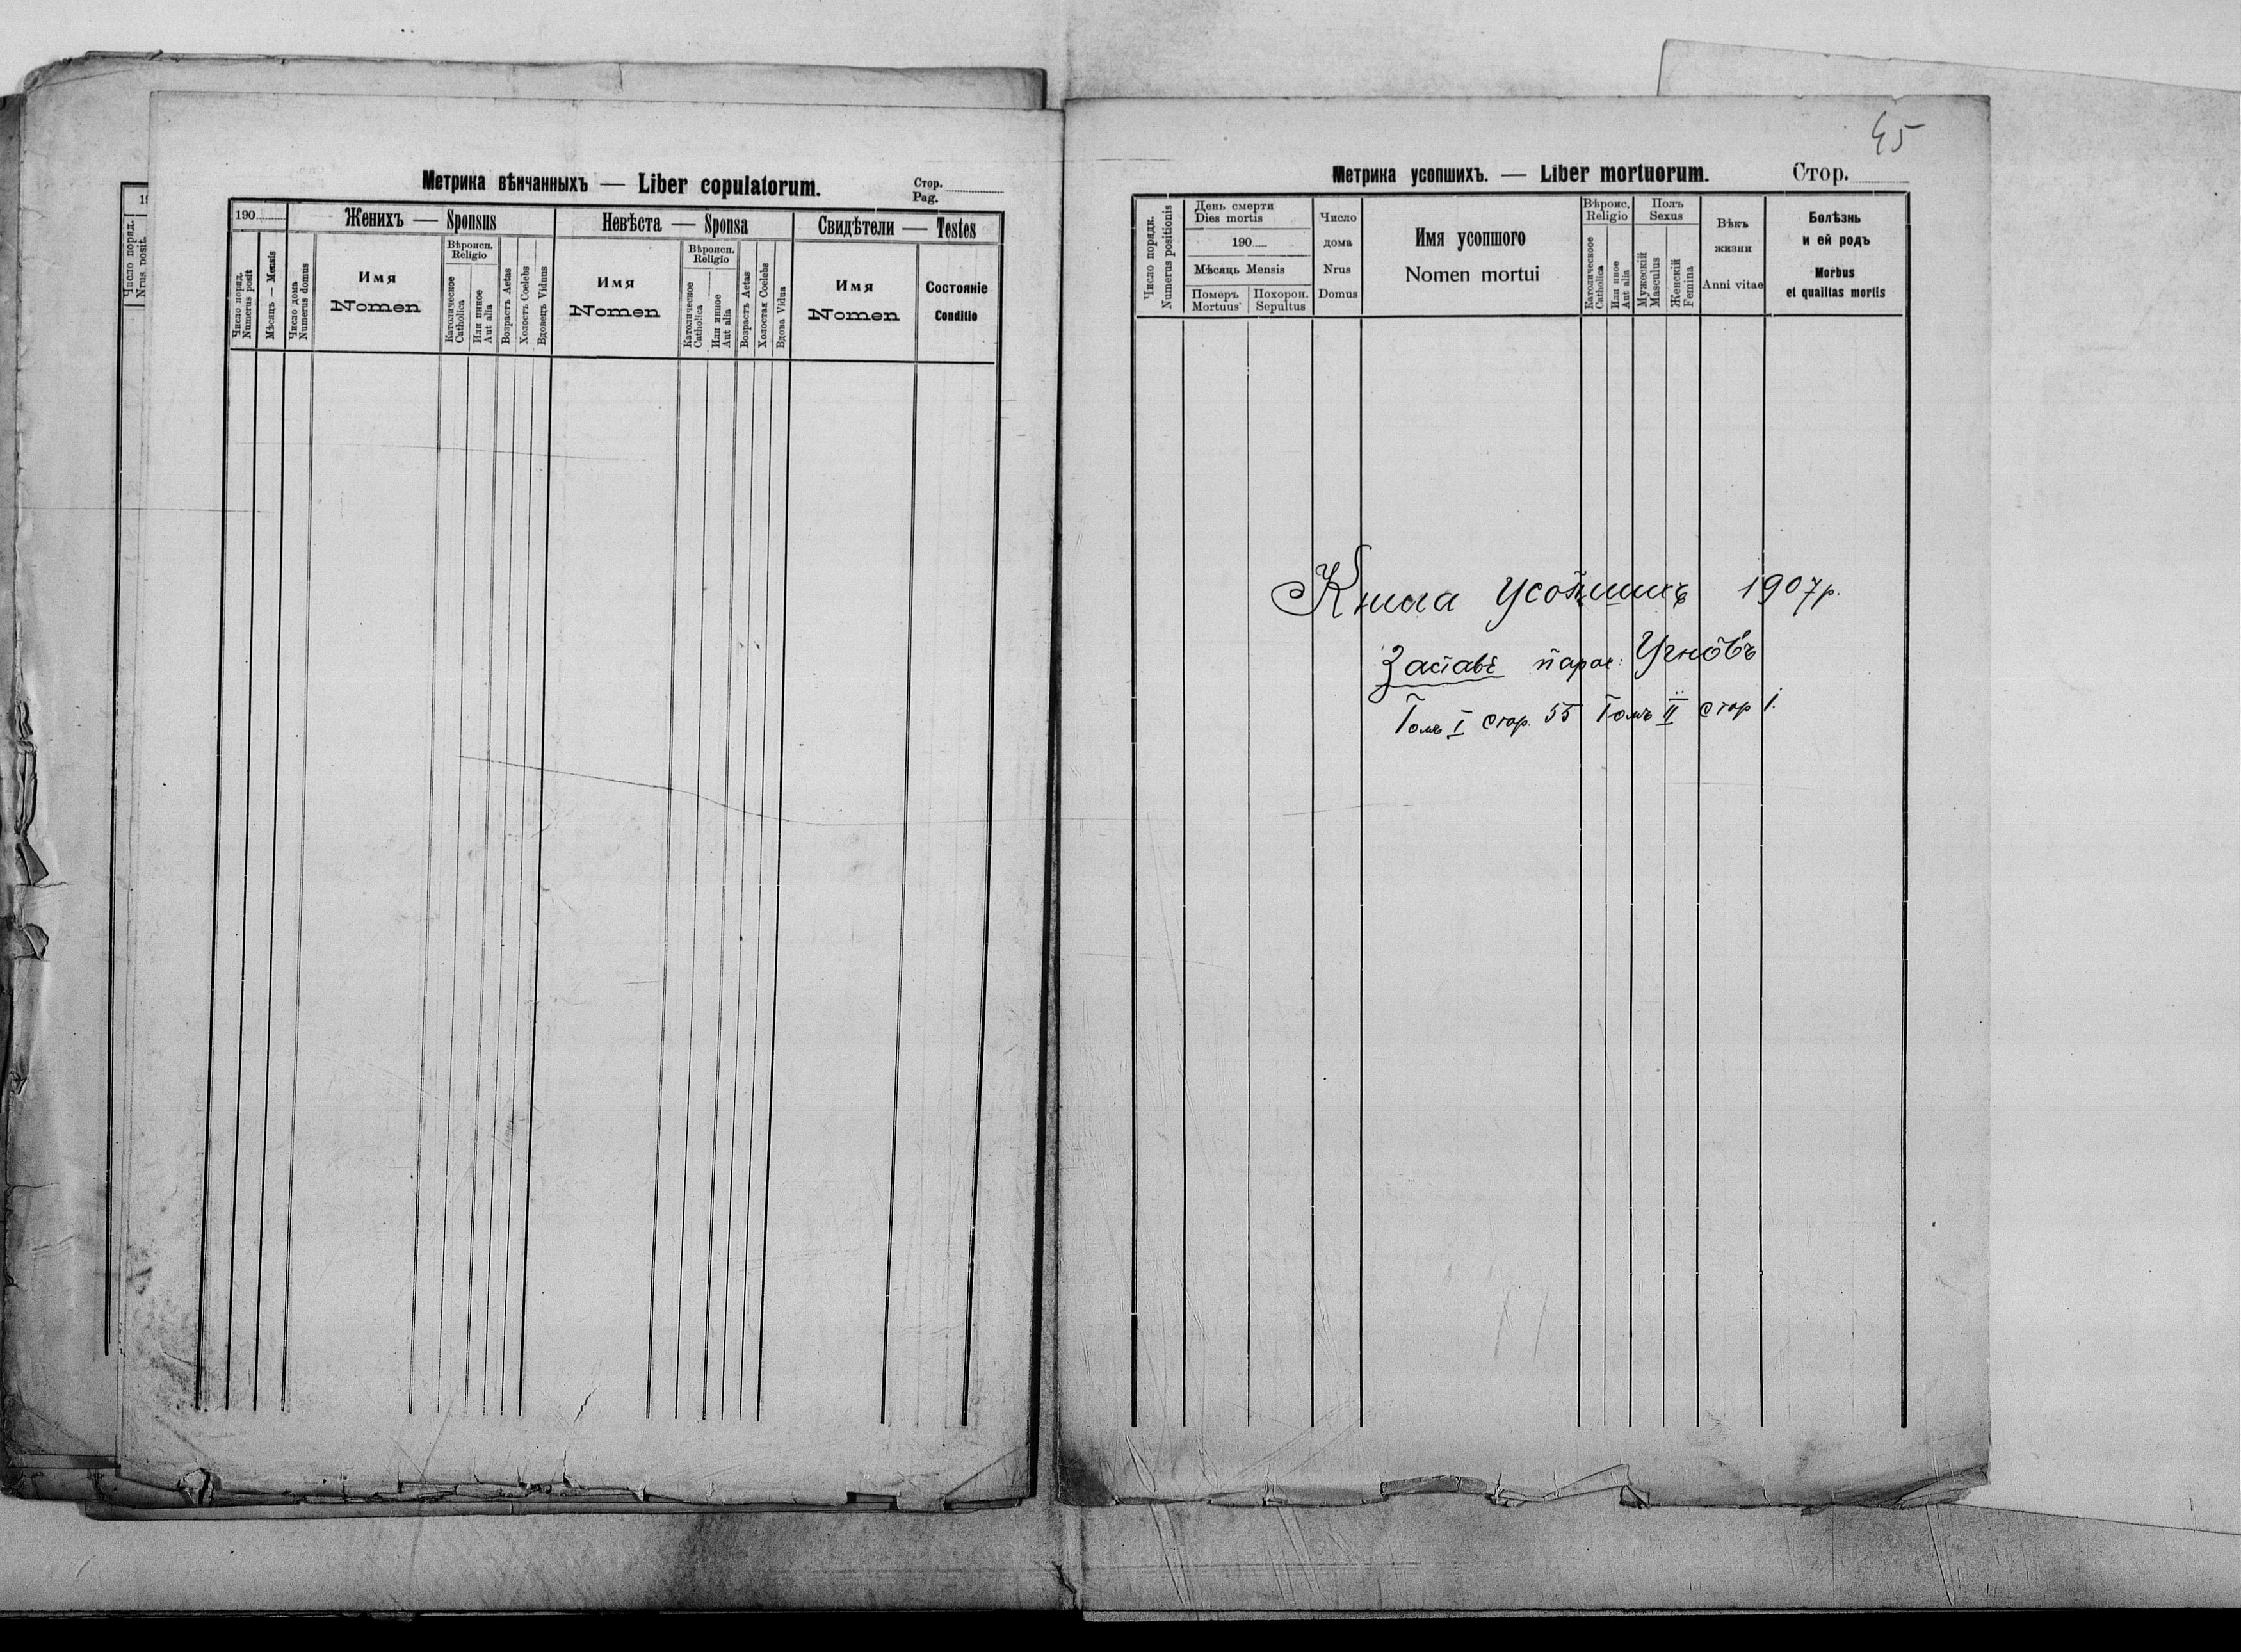 19
Число поряд.
Nrus posit.
Метрика вѣнчанныхъ — Liber copulatorum.
Стор.
Pag.
190
Женихъ — Sponsus
Невѣста — Sponsa
Свидѣтели — Testes
Число поряд.
Numerus posit
Мѣсяць — Mensis
Число дома
Numerus domus
Имя
Nomen
Вѣроисп.
Religio
Католическое
Catholica
Или иное
Aut alia
Возрастъ Aetas
Холостъ Coelebs
Вдовець Vidnus
Имя
Nomen
Вѣроисп.
Religio
Католическое
Catholica
Или иное
Aut alia
Возрастъ Aetas
Холостая Coelebs
Вдова Vidua
Имя
Nomen
Состояніе
Conditio
45
Метрика усопшихъ. — Liber mortuorum.
Стор.
Число порядк.
Numerus positionis
День смерти
Dies mortis
190
Мѣсяць Mensis
Померъ
Mortuus
Похорон.
Sepultus
Число
дома
Nrus
Domus
Имя усопшого
Nomen mortui
Вѣроис.
Religio
Католическоое
Catholica
Или иное
Aut alia
Полъ
Sexus
Мужескій
Masculus
Женскій
Femina
Вѣкъ
жизни
Anni vitae
Болѣзнь
и ей родъ
Morbus
et qualitas mortis
Книга усопшихъ 1907 р.
Заставе парох: Угнôвъ
Томъ I стор. 55 Томъ II стор 1.